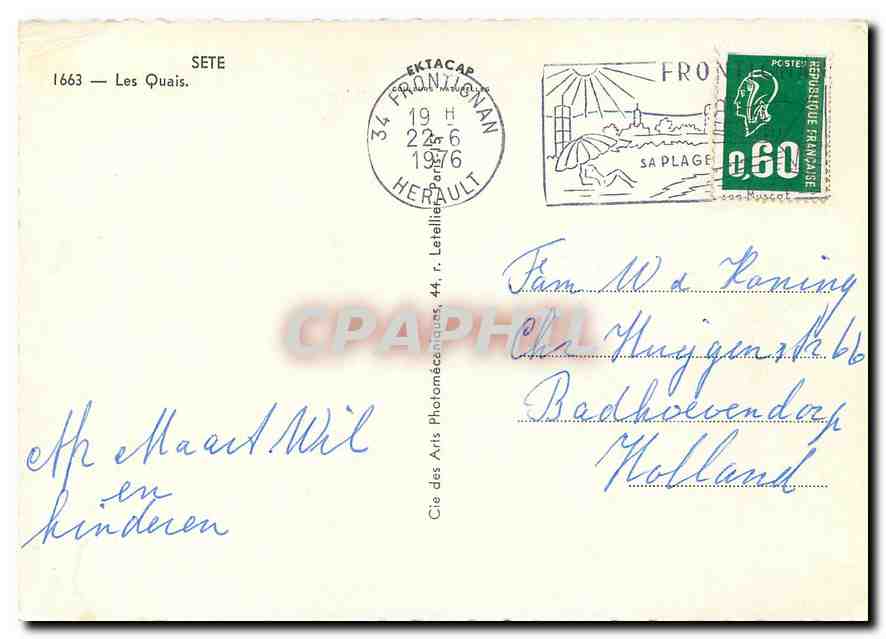 SETE
1663 — Les Quais.
EKTACAP
COULEURS NATURELLES
34 FRONTIGNAN
19 H
22-6
1976
HERAULT
FRONTIGNAN
SA PLAGE
Muscat
POSTES
RÉPUBLIQUE FRANÇAISE
0,60
Cie des Arts Photomécaniques, 44, r. Letellier, Paris-15
CPAPHIL
Fam W d Koning
Chr Huijgenstr 66
Badhoevendorp
Holland
Maart Wil
en
kinderen